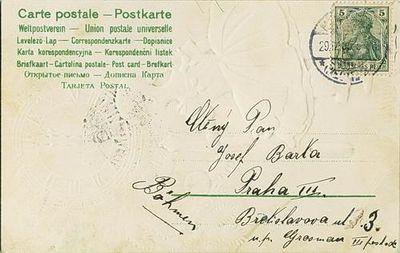 Carte postale – Postkarte
Weltpostverein – Union postale universelle
Levelező-Lap – Correspondenzkarte – Dopisnica
Karta korespondencyjna – Korespondenční listek
Briefkaart – Cartolina postale – Post card – Brefkort
Открытое письмо – Дописна Карта
Tarjeta Postal
5 5
Ctěný Pan
Josef Barta
Praha III.
Böhmen
Bretislavova ul 3.
u.p. Grosman III poschodí